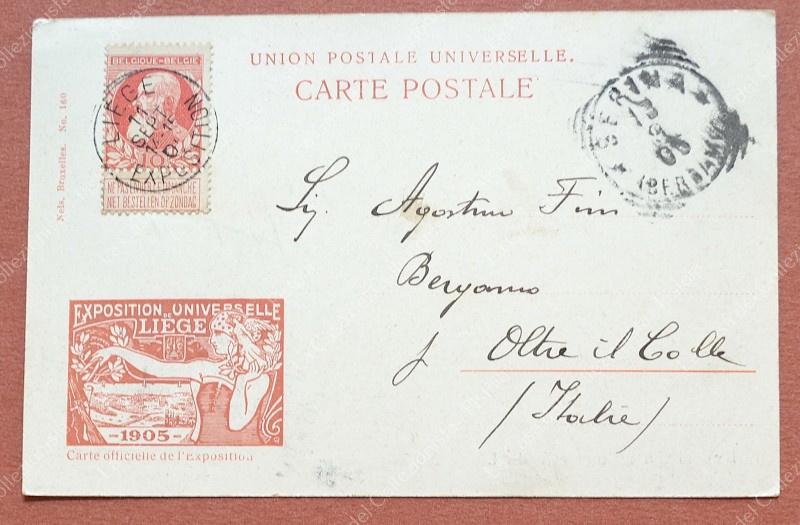 BELGIQUE-BELGIE
10
NE PAS LIVRER LE DIMANCHE
NET BESTELLEN OP ZONDAG
LIEGE
SEPT
EXPOSITION
UNION POSTALE UNIVERSELLE.
CARTE POSTALE
SERINA
05
(BERGAMO)
Nels, Bruxelles. No. 160
Sig. Agostino
Bergamo
Oltre il Colle
(Italie)
EXPOSITION UNIVERSELLE
DE
LIÈGE
-1905-
Carte officielle de l'Exposition